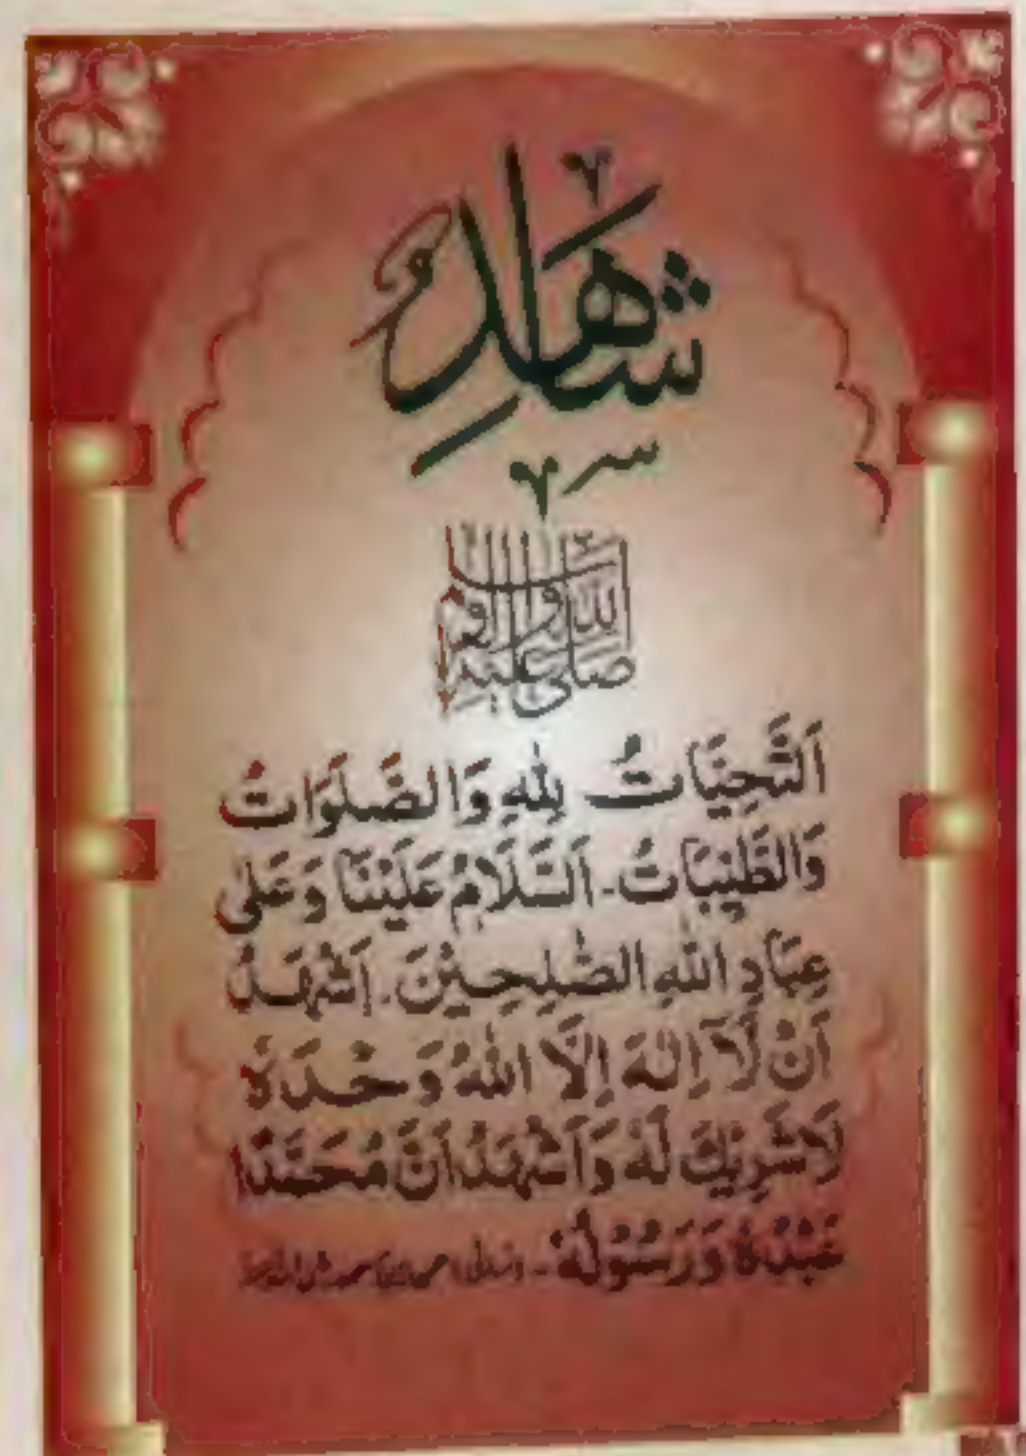 شَاهِدٌ
صلی اللہ علیہ والہ
اَلتَّحِيَّاتُ لِلّٰهِ وَالصَّلَوَاتُ
وَالطَّيِّبَاتُ۔ اَلسَّلَامُ عَلَيْنَا وَعَلٰى
عِبَادِ اللّٰهِ الصّٰلِحِيْنَ۔ اَشْهَدُ
اَنْ لَّآ اِلٰهَ اِلَّا اللّٰهُ وَحْدَهٗ
لَا شَرِيْكَ لَهٗ وَاَشْهَدُ اَنَّ مُحَمَّدًا
عَبْدُهٗ وَرَسُوْلُهٗ۔